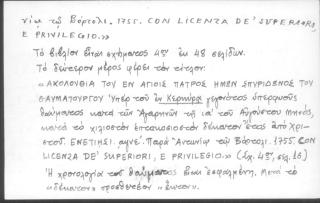 νίῳ τῷ Βόρτολι, 1755. CON LICENZA DE' SUPERIORI,
E PRIVILEGIO.»
Τό βιβλίον εἶναι σχήματος 4ον ἐκ 48 σελίδων.
Τό δεύτερον μέρος φέρει τόν τίτλον:
«ΑΚΟΛΟΥΘΙΑ ΤΟΥ ΕΝ ΑΓΙΟΙΣ ΠΑΤΡΟΣ ΗΜΩΝ ΣΠΥΡΙΔΩΝΟΣ ΤΟΥ
ΘΑΥΜΑΤΟΥΡΓΟΥ Ὑπέρ τοῦ ἐν Κερκύρᾳ γεγονότος ὑπερφυοῦς
θαύματος κατά τῶν Ἀγαρηνῶν τῇ ια' τοῦ Αὐγούστου μηνός,
κατά τό χιλιοστόν ἑπτακοσιοστόν δέκατον ἔτος ἀπό Χρι-
στοῦ. ΕΝΕΤΙΗΣΙ. αψνε'. Παρά Ἀντωνίῳ τῷ Βόρτολι. 1755. CON
LICENZA DE' SUPERIORI, E PRIVILEGIO.» (σχ. 4ον, σελ. 16)
Ἡ χρονολογία τοῦ θαύματος εἶναι ἐσφαλμένη. Μετά τό
«δέκατον» προσθετέον «ἕκτον».